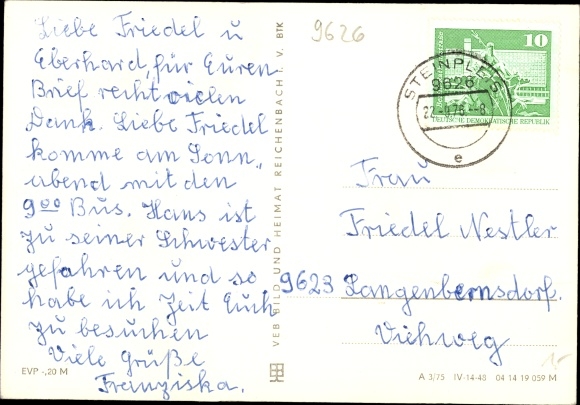 Liebe Friedel u
Eberhard, für Euren
Brief recht vielen
Dank. Liebe Friedel
komme am Sonn„
abend mit den
9⁰⁰ Bus. Hans ist
zu seiner Schwester
gefahren und so
habe ich Zeit Euch
zu besuchen
Viele Grüße
Franziska.
EVP -,20 M
VEB BILD UND HEIMAT REICHENBACH I. V. BfK
9626
10
STEINPLEIS
9626
22.-9.76.-8
e
DEUTSCHE DEMOKRATISCHE REPUBLIK
Frau
Friedel Nestler
9623 Langenbernsdorf.
Viehweg
1-
A 3/75 IV-14-48 04 14 19 059 M